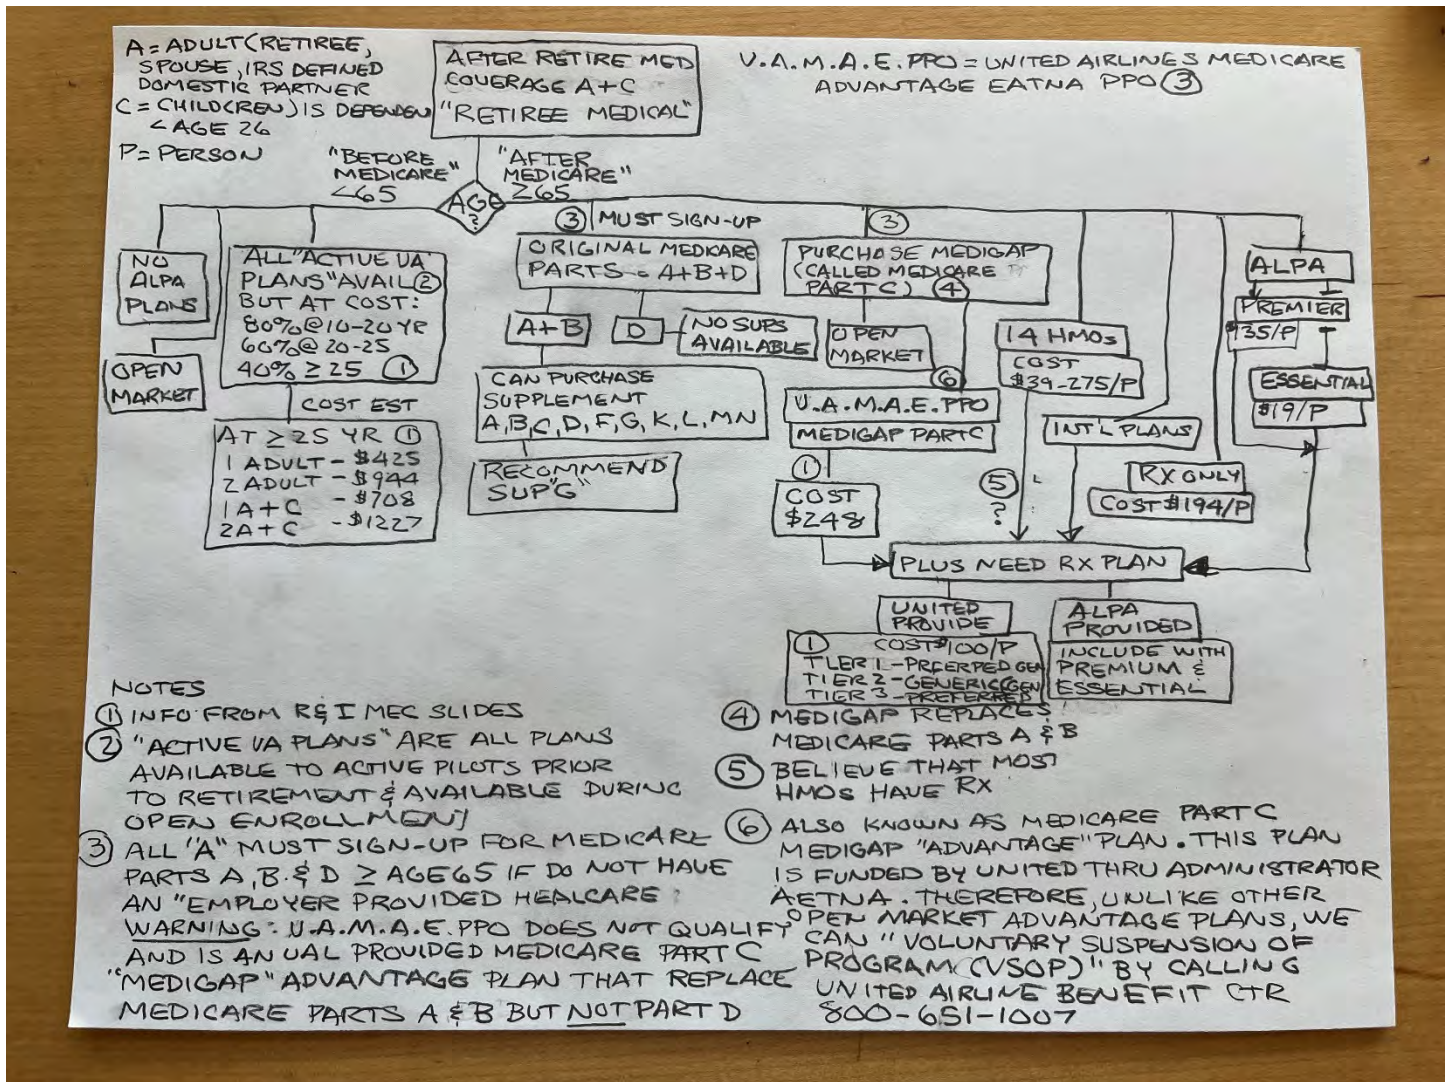 A = ADULT (RETIREE,
SPOUSE, IRS DEFINED
DOMESTIC PARTNER
C = CHILD(REN) IS DEPENDEN
< AGE 26
P = PERSON
AFTER RETIRE MED
COVERAGE A+C
"RETIREE MEDICAL"
U.A.M.A.E. PPO = UNITED AIRLINES MEDICARE
ADVANTAGE EATNA PPO ③
"BEFORE
MEDICARE"
<65
AGE
?
"AFTER
MEDICARE"
≥65
NO
ALPA
PLANS
OPEN
MARKET
ALL "ACTIVE UA
PLANS" AVAIL ②
BUT AT COST:
80% @ 10-20 YR
60% @ 20-25
40% ≥ 25 ①
COST EST
AT ≥ 25 YR ①
1 ADULT - $425
2 ADULT - $944
1A+C - $708
2A+C - $1227
③ MUST SIGN-UP
ORIGINAL MEDICARE
PARTS = A+B+D
A+B
D
NO SUPS
AVAILABLE
CAN PURCHASE
SUPPLEMENT
A, B, C, D, F, G, K, L, MN
RECOMMEND
SUP "G"
③
PURCHASE MEDIGAP
(CALLED MEDICARE
PART C) ④
OPEN
MARKET
⑥
U.A.M.A.E. PPO
MEDIGAP PART C
①
COST
$248
14 HMOs
COST
$39-275/P
⑤
?
INT'L PLANS
RX ONLY
COST $194/P
ALPA
PREMIER
$35/P
ESSENTIAL
$19/P
PLUS NEED RX PLAN
UNITED
PROVIDE
① COST $100/P
TIER 1 - PREFERPED GEN
TIER 2 - GENERIC (GEN
TIER 3 - PREFERRED
ALPA
PROVIDED
INCLUDE WITH
PREMIUM &
ESSENTIAL
NOTES
① INFO FROM R&I MEC SLIDES
② "ACTIVE UA PLANS" ARE ALL PLANS
AVAILABLE TO ACTIVE PILOTS PRIOR
TO RETIREMENT & AVAILABLE DURING
OPEN ENROLLMENT
③ ALL "A" MUST SIGN-UP FOR MEDICARE
PARTS A, B & D ≥ AGE 65 IF DO NOT HAVE
AN "EMPLOYER PROVIDED HEALCARE
WARNING: U.A.M.A.E. PPO DOES NOT QUALIFY
AND IS AN UAL PROVIDED MEDICARE PART C
"MEDIGAP" ADVANTAGE PLAN THAT REPLACE
MEDICARE PARTS A & B BUT NOT PART D
④ MEDIGAP REPLACES
MEDICARE PARTS A & B
⑤ BELIEVE THAT MOST
HMOS HAVE RX
⑥ ALSO KNOWN AS MEDICARE PART C
MEDIGAP "ADVANTAGE" PLAN. THIS PLAN
IS FUNDED BY UNITED THRU ADMINISTRATOR
AETNA. THEREFORE, UNLIKE OTHER
OPEN MARKET ADVANTAGE PLANS, WE
CAN "VOLUNTARY SUSPENSION OF
PROGRAM (VSOP)" BY CALLING
UNITED AIRLINE BENEFIT CTR
800-651-1007